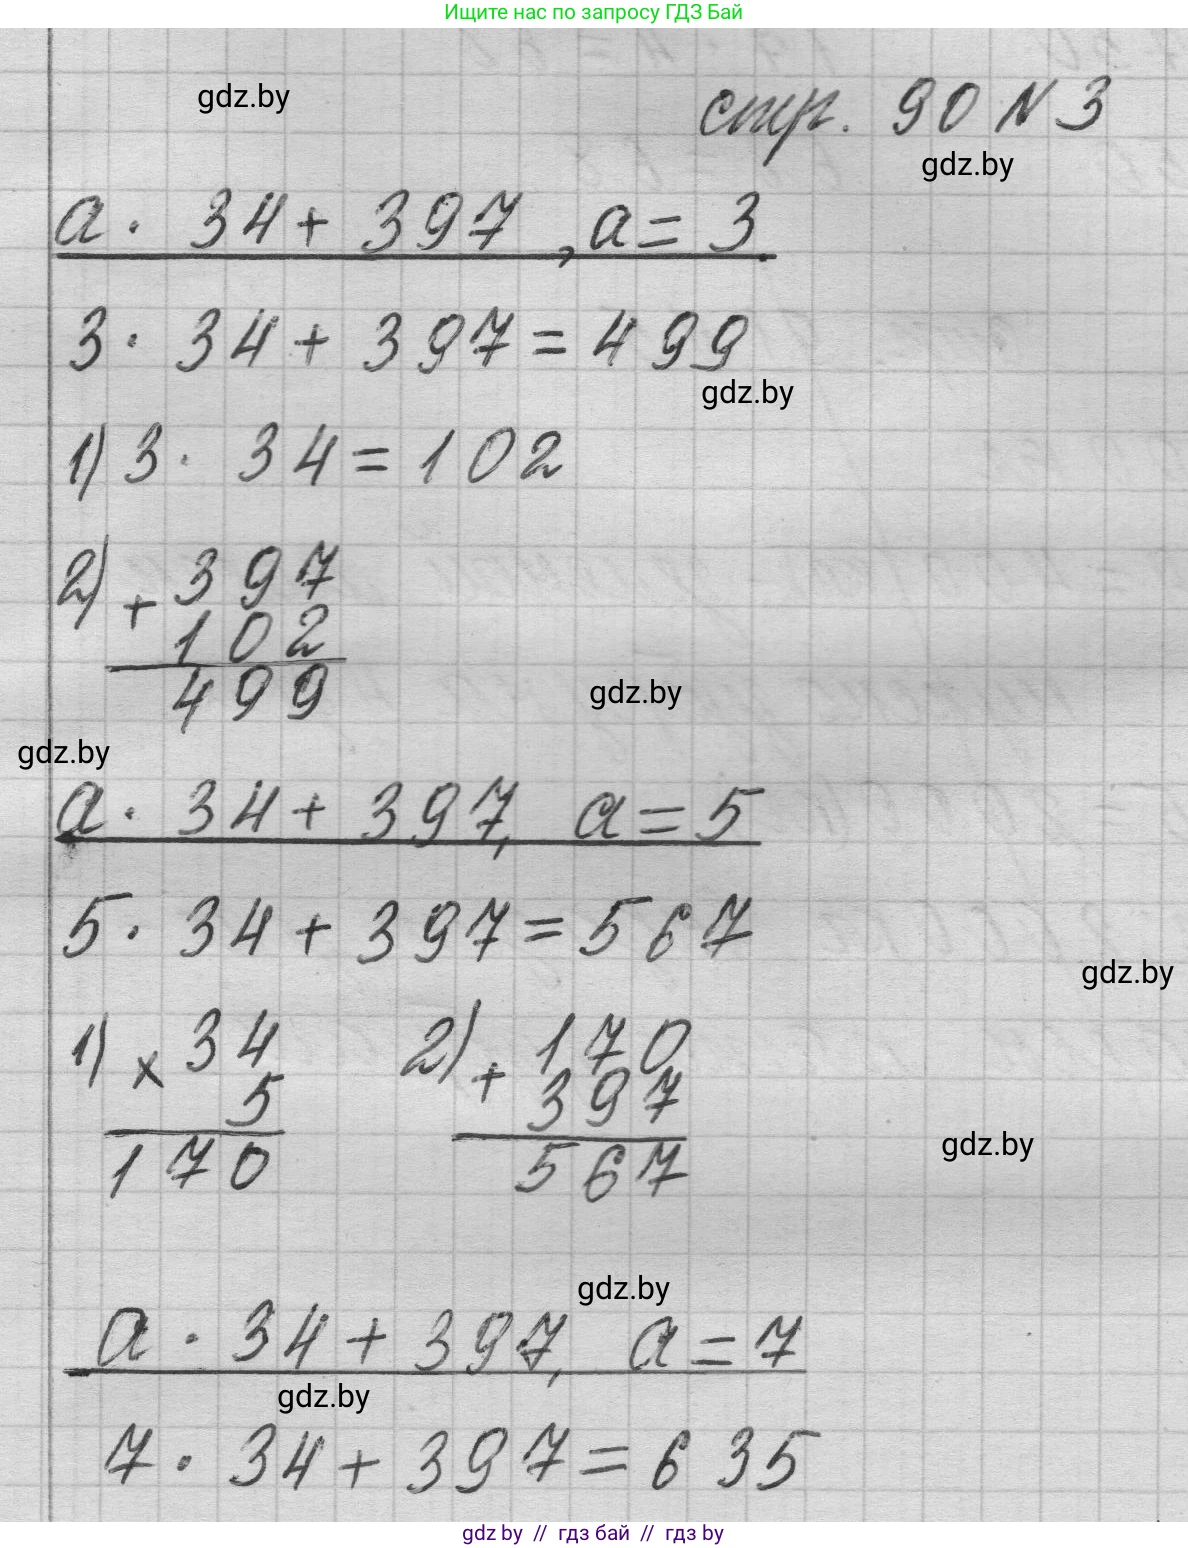 Ищите нас по запросу ГДЗ Бай
gdz.by
стр. 90 N 3
gdz.by
a · 34 + 397, a = 3.
3 · 34 + 397 = 499
gdz.by
1) 3 · 34 = 102
2) + 397
102
499
gdz.by
gdz.by
a · 34 + 397, a = 5
5 · 34 + 397 = 567
gdz.by
1) × 34 2) + 170
5 397
170 567
gdz.by
gdz.by
a · 34 + 397, a = 7
gdz.by
7 · 34 + 397 = 635
gdz by // гдз бай // гдз by